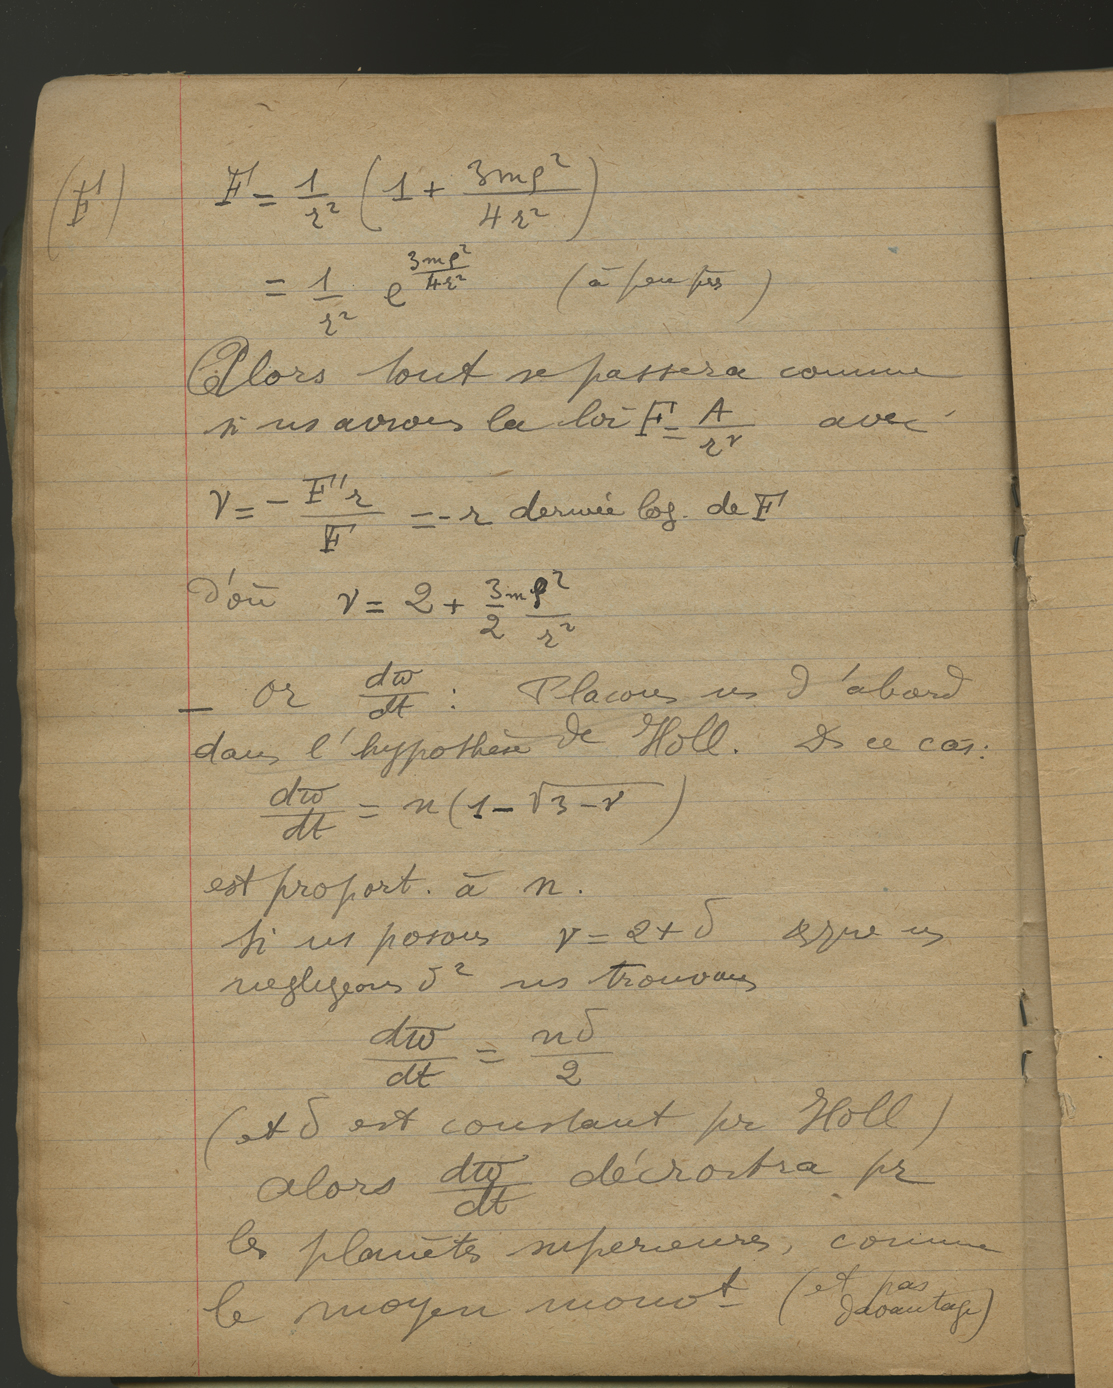 (F) F = 1/r² (1 + 3mρ²/4r²)
= 1/r² e^(3mρ²/4r²) (à peu près)
Alors tout se passera comme
si ns avions la loi F = A/r^ν avec
ν = - F'r/F = - r derivée log. de F
D'où ν = 2 + 3/2 m ρ²/r²
_ Or dϖ/dt : Placons ns d'abord
dans l'hypothèse de Holl. Ds ce cas:
dϖ/dt = n(1 - √3-ν)
est proport. à n.
Si ns posons ν = 2 + δ et que ns
negligeons δ² ns trouvons
dϖ/dt = nδ/2
(et δ est constant pr Holl)
Alors dϖ/dt décroitra pr
les planètes superieures, comme
le moyen mouvt (et pas
davantage)